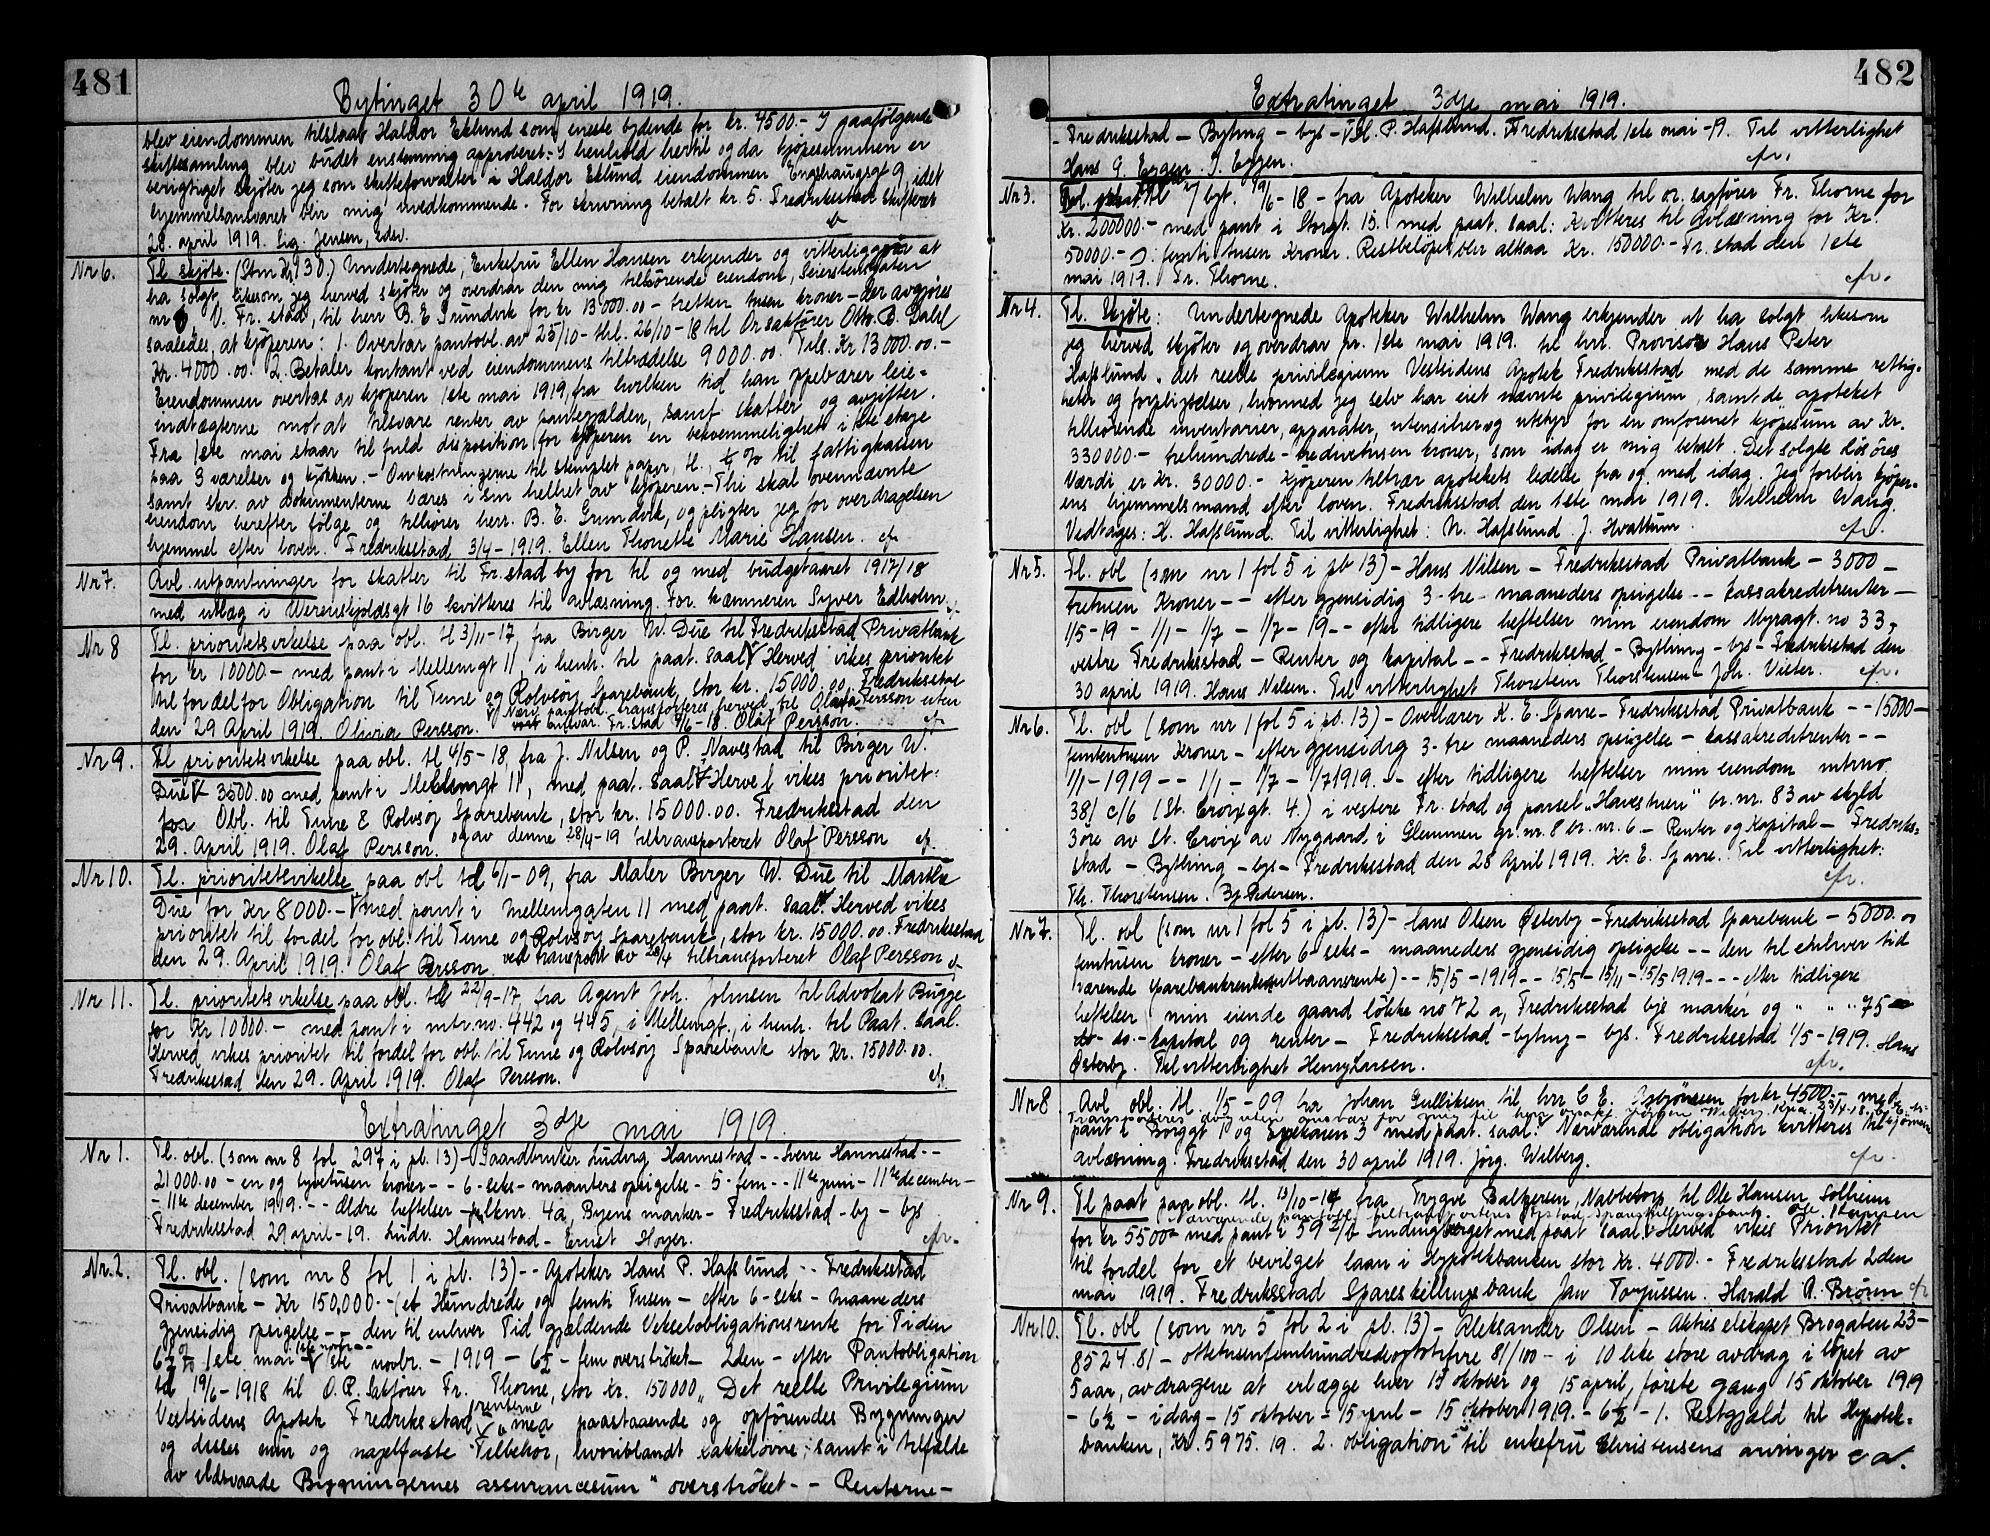 481
Bytinget 30te april 1919.
blev eiendommen tilslaat Haldor Eklund som eneste bydende for kr. 4500.- I paafølgende
skiftesamling blev budet enstemmig approberet. - I henhold hertil og da kjøpesummen er
berigtiget skjøter jeg som skifteforvalter i Haldor Eklund eiendommen Engehaugsgt 9, idet
hjemmelsansvaret blir mig uvedkommende. For skrivning betalt kr. 5. Fredriksstad skifteret
28. april 1919. Sig. Jensen, edsv.
Nr 6. Tl. skjøte. (Stm Kr 130.) Undertegnede, Enkefru Ellen Hansen erkjender og vitterliggjør at
ha solgt, likesom jeg herved skjøter og overdrar den mig tilhørende eiendom, Seierstensgaten
nr V. Fr. stad, til herr B. E. Grundvik for kr 13000.00 - tretten tusen kroner - der avgjøres
saaledes, at kjøperen: 1. Overtar pantobl. av 25/10 - thl. 26/10-18 til Or sakfører Otto B. Dahl
Kr. 4000.00. 2. Betaler kontant ved eiendommens tiltrædelse 9000.00. Tils. Kr 13000.00.-
Eiendommen overtas av kjøperen 1ste mai 1919, fra hvilken tid han oppebærer leie-
indtægterne mot at tilsvare renter av pantegjælden, samt skatter og avgifter.
Fra 1ste mai staar til fuld disposition for kjøperen en bekvemmelighet i 1ste etage
paa 3 værelser og kjøkken. - Omkostningerne til stemplet papir, tl., 1/2 % til fattigkassen
samt skr. av dokumenterne bæres i sin helhet av kjøperen. - Thi skal ovennævnte
eiendom herefter følge og tilhører herr. B. E. Grundvik, og pligter jeg for overdragelsen
hjemmel efter loven. Fredriksstad 3/4-1919. Ellen Thonette Marie Hansen. cfr
Nr 7. Avl. utpantninger for skatter til Fr. stad by for til og med budgetaaret 1917/18
med utlæg i Werenskjoldsgt 16 kvitteres til avlæsning. For kæmneren Syver Edholm. cfr
Nr 8 Tl. prioritetsvikelse paa obl. tl 3/11-17, fra Birger W. Due til Fredriksstad Privatbank
for kr 10000.- med pant i Mellemgt 11 i henh. til paat. saal. Herved vikes prioritet
til fordel for Obligation til Tune og Rolvsøy Sparebank, stor kr. 15000.00. Fredriksstad
Nærv. pantobl. transporteres herved til Olava Persson uten
den 29 April 1919. Olivia Persson. vort ansvar. Fr. stad 4/6-18. Olaf Persson. cfr
Nr 9. Tl prioritetsvikelse paa obl. tl 4/5-18, fra J. Nilsen og P. Navestad til Birger W.
Due 3500.00 med pant i Mellemgt 11, med paat. saal. Herved vikes prioritet:
for Obl. til Tune & Rolvsøy Sparebank, stor kr. 15000.00. Fredriksstad den
29. April 1919. Olaf Persson. og av denne 28/4-19 tiltransporteret Olaf Persson cfr.
Nr 10. Tl. prioritetsvikelse paa obl tl 6/1-09, fra Maler Birger W. Due til Martha
Due for Kr 8000.- med pant i Mellemgaten 11 med paat. saal. Herved vikes
prioritet til fordel for obl. til Tune og Rolvsøy Sparebank, stor kr. 15000.00. Fredriksstad
den 29. April 1919. Olaf Persson. ved transport av 28/4 tiltransporteret Olaf Persson cfr
Nr 11. Tl. prioritetsvikelse paa obl. tl 22/9-17, fra Agent Joh. Johnsen til Advokat Bugge
for Kr 10000.- med pant i mtr. no. 442 og 445, i Mellemgt. i henh. til Paat. saal.
Herved vikes prioritet til fordel for obl. til Tune og Rolvsøy Sparebank stor Kr. 15000.00.
Fredriksstad den 29. April 1919. Olaf Persson. cfr.
Extratinget 3dje mai 1919.
Nr 1. Tl. obl. (som nr 8 fol 297 i pb. 13) - Gaardbruker Ludvig Hannestad - - Sverre Hannestad - -
21000.00 - en og tyvetusen kroner - - 6-seks- maaneders opsigelse - 5-fem - - 11te juni - 11te december -
- 11te december 1919. - - Ældre heftelser - 4a, Byens marker - Fredriksstad - by - bys
Fredriksstad 29 april-19. Ludv. Hannestad - Ernst Høyer. cfr.
Nr. 2. Tl. obl. (som nr 8 fol 1 i pb. 13) - - Apoteker Hans P. Hafslund - - Fredriksstad
Privatbank - Kr 150,000.- (et Hundrede og femti Tusen - efter 6-seks - maaneders
gjensidig opsigelse - - den til enhver Tid gjældende Vekselobligationsrente for Tiden
6 1/2 % 1ste mai - 1ste novbr. - 1919 - 6 1/2 - fem overstrøket - 2den - efter Pantobligation
tl 19/6-1918 til O.R. Sakfører Fr. Thorne, stor Kr. 150000 „ Det reelle Privilegium
Vestsidens Apotek Fredriksstad, med paastaaende og opførendes Bygninger
og disses mur og nagelfaste Tilbehør, hvoriblandt kakkelovne, samt i tilfælde
av ildsvaade Bygningernes assurancesum " overstrøket - - Renterne -
482
Extratinget 3dje mai 1919.
- Fredriksstad - Byting - bys - H. P. Hafslund. Fredriksstad 1ste mai -19. Til vitterlighet
Hans G. Eggen. I. Eggen. cfr.
Nr 3. Avl. tl 27 bgt. 19/6-18 - fra Apoteker Wilhelm Wang til or. sagfører Fr. Thorne for
Kr. 200000.- med pant i Storgt. 15. med paat. saal: Kvitteres til avlæsning for Kr.
50000.- ɔ: femti tusen kroner. Restbeløpet blir altsaa Kr. 150000.- Fr. stad den 1ste
mai 1919. Fr. Thorne. cfr.
Nr 4. Tl. Skjøte: Undertegnede Apoteker Wilhelm Wang erkjender at ha solgt likesom
jeg herved skjøter og overdrar pr. 1ste mai 1919. til hrr. Provisor Hans Peter
Hafslund. det reelle privilegium Vestsidens Apotek Fredriksstad med de samme rettig-
heter og forpligtelser, hvormed jeg selv har eiet nævnte privilegium, samt de apoteket
tilhørende inventarier, apparater, utensilier og utstyr for en omforenet kjøpesum av Kr.
330000.- trehundrede - tredivetusen kroner, som idag er mig betalt. Det solgte løsøres
Værdi er Kr. 30000.- Kjøperen tiltrær apotekets ledelse fra og med idag. Jeg forblir kjøper-
ens hjemmelsmand efter loven. Fredriksstad den 1ste mai 1919. Wilhelm Wang.
Vedtages: H. Hafslund. Til vitterlighet: N. Hafslund. J. Hvattum. cfr.
Nr 5. Tl. obl (som nr 1 fol 5 i pb 13) - Hans Nilsen - Fredriksstad Privatbank - 3000 -
tretusen Kroner - - efter gjensidig 3-tre- maaneders opsigelse - - kassakreditrenter -
1/5-19 - 1/1 - 1/7 - 1/7-19 - - efter tidligere heftelser min eiendom Nyragt. no 33,
vestre Fredriksstad - Renter og kapital - - Fredriksstad - Bythings - bys - Fredriksstad den
30 april 1919. Hans Nilsen. Til vitterlighet Thorstein Thorstensen - Joh. Vister. cfr.
Nr 6. Tl. obl (som nr 1 fol 5 i pb. 13) - Overlærer K. E. Sparre - Fredriksstad Privatbank - - 15000 -
femtentusen Kroner - efter gjensidig 3-tre maaneders opsigelse - kassakreditrenter - -
1/1-1919 - - 1/1 - 1/7 - 1/7 1919. - - efter tidligere heftelser min eiendom mtrno
38/ c/6 (St. Croixgt. 4.) i vestere Fr. stad og parsel „Havestuen" br. nr. 83 av skyld
3 øre av St. Croix av Nygaard i Glemmen gr. nr. 8 br. nr. 6. - Renter og Kapital - Fredriks-
stad - Bything - bys - Fredriksstad den 28 April 1919. Kr. E. Sparre. Til vitterlighet:
Th. Thorstensen. Bj. Pedersen. cfr.
Nr 7. Tl. obl (som nr 1 fol 5 i pb. 13) - Hans Olsen Østerby - Fredriksstad Sparebank - 5000.00
femtusen kroner - efter 6-seks- maaneders gjensidig opsigelse - - den til enhver tid
værende sparebankrente (utlaansrente) - - 15/5-1919 - - 15/5 - 15/11 - 15/5 1919 - - - efter tidligere
heftelser min eiende gaard løkke no 72 a, Fredriksstad bys marker og " " " 75
do - do. - kapital og renter - Fredriksstad - byting - bys. Fredriksstad 1/5-1919. Hans
Østerby. Til vitterlighet Henry Larsen. cfr.
Nr 8 Avl. obl. tl. 1/5-09 fra Johan Gulliksen til hrr C. E. Isbjørnsen for kr 4500.- med
Transporteres hvg uten ansvar for mig til herr Jørgen Wilberg 23/4-18. C. E. Is-
pant i Borggt 10 og 3 med paat. saal: Nærværende obligation kvitteres til bjørnsen
avlæsning. Fredriksstad den 30 april 1919. Jørg. Wilberg. cfr.
Nr 9. Tl paat paa obl. tl. 13/10-14 fra Trygve Baltzersen, Nabbetorp til Ole Hansen Solheim
Nærværende pantobl. tiltransporteres Frstad Spareskillingsbank. Ole Hansen
for kr 5500 - med pant i 59 Lundingberget med paat saal. Herved vikes Prioritet
til fordel for et bevilget laan i Hypotekbanken stor Kr. 4000.- Fredriksstad 2den
mai 1919. Fredriksstad Spareskillingsbank Jan Torjussen. Harald A. Brønn cfr
Nr 10. Tl. obl (som nr 5 fol 2 i pb. 13) - Aleksander Olsen - Aktieselskapet Brogaten 23 -
8524.81 - ottetusenfemhundredeogtotifire 81/100 - i 10 like store avdrag i løpet av
5 aar, avdragene at erlægge hver 15 oktober og 15 april, første gang 15 oktober 1919
- 6 1/2 - idag - 15 oktober - 15 april - 15 oktober 1919. - 6 1/2 - 1. Restgjæld til Hypotek-
banken, Kr. 5975.19. 2. obligation til enkefru Christensens arvinger ca.